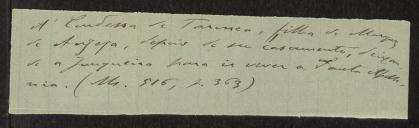 A Condessa de Tarouca, filha do Marquez
de Angeja, depois de seu casamento, deixou
se a Junqueira para ir viver a Santa Apollo-
nia. (Ms. 816, p. 363)